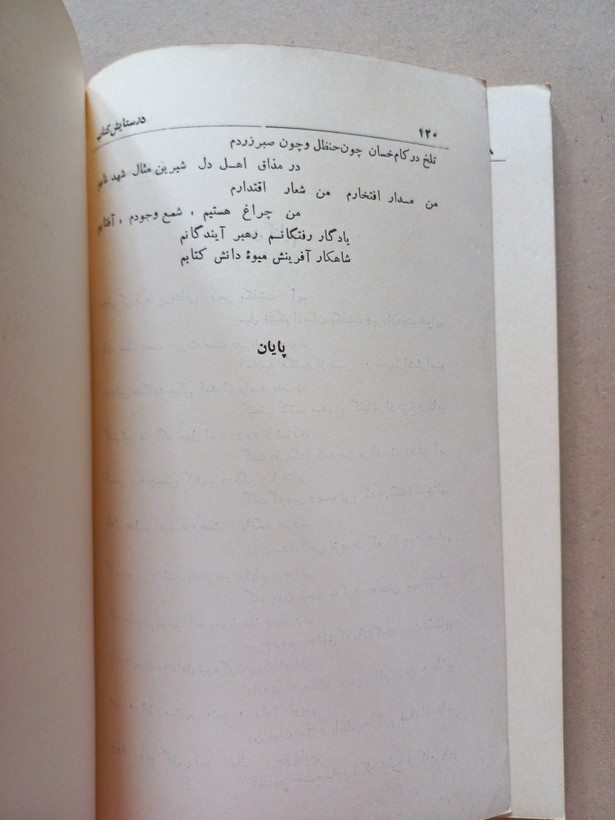 ۱۲۰ در ستایش کتاب
تلخ در کام خسان چون حنظل و چون صبر زردم
در مذاق اهل دل شیرین مثال شهد نابم
من مدار افتخارم من شعار اقتدارم
من چراغ هستیم ، شمع وجودم ، آفتابم
یادگار رفتگانم رهبر آیندگانم
شاهکار آفرینش میوهٔ دانش کتابم
پایان